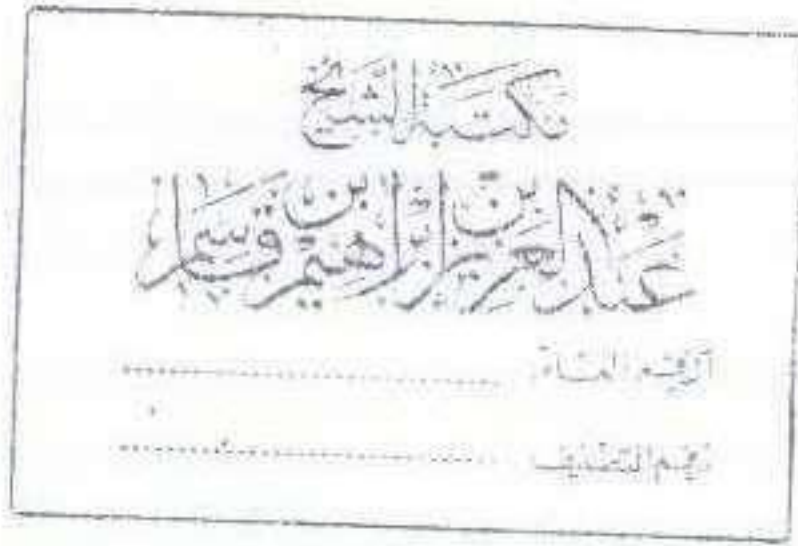 مكتبة الشيخ
عبد العزيز بن إبراهيم بن قاسم
الرقم العام
رقم التصنيف